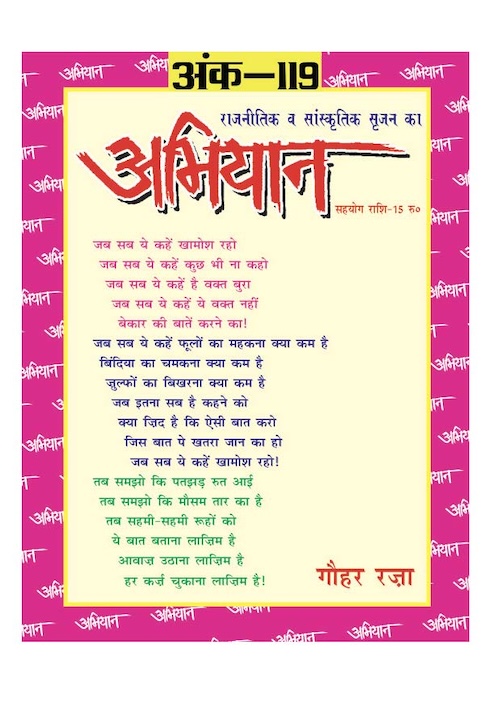 अंक–119
राजनीतिक व सांस्कृतिक सृजन का
अभियान
सहयोग राशि-15 रु०
जब सब ये कहें खामोश रहो
जब सब ये कहें कुछ भी ना कहो
जब सब ये कहें है वक्त बुरा
जब सब ये कहें ये वक्त नहीं
बेकार की बातें करने का!
जब सब ये कहें फूलों का महकना क्या कम है
बिंदिया का चमकना क्या कम है
ज़ुल्फों का बिखरना क्या कम है
जब इतना सब है कहने को
क्या ज़िद है कि ऐसी बात करो
जिस बात पे खतरा जान का हो
जब सब ये कहें खामोश रहो!
तब समझो कि पतझड़ रुत आई
तब समझो कि मौसम तार का है
तब सहमी-सहमी रूहों को
ये बात बताना लाज़िम है
आवाज़ उठाना लाज़िम है
हर कर्ज़ चुकाना लाज़िम है!
गौहर रज़ा